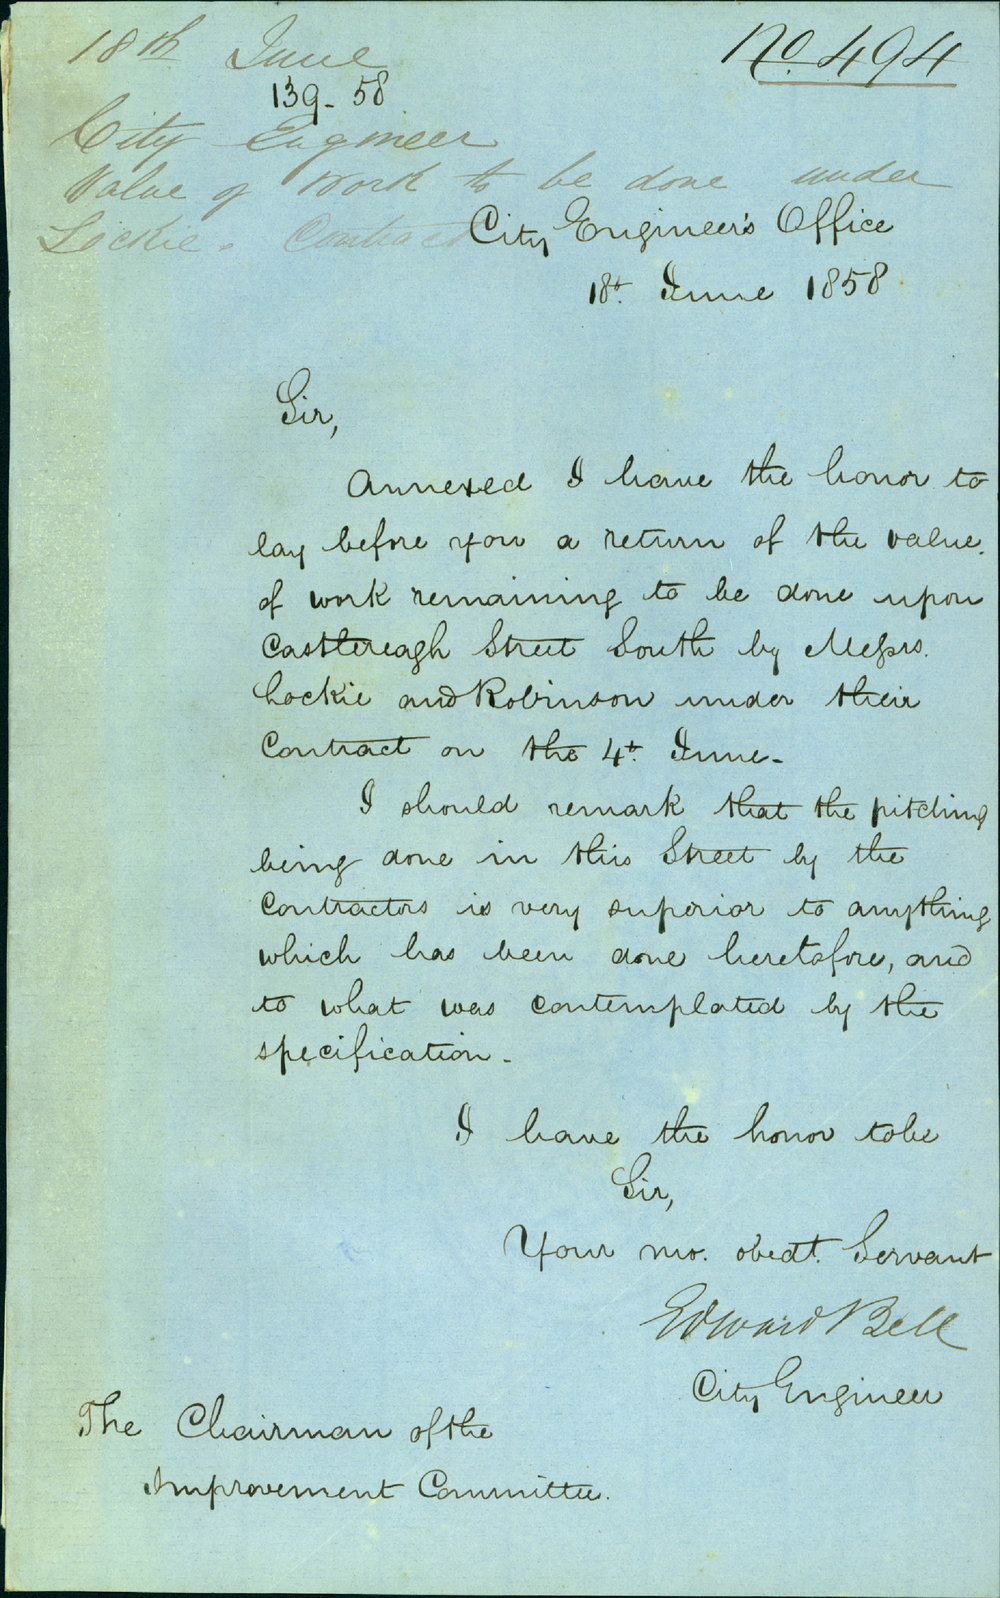 18th June
No. 494
139-58
City Engineer
Value of Work to be done under
Lockie. Contract
City Engineer's Office
18t. June 1858
Sir,
Annexed I have the honor to
lay before you a return of the value
of work remaining to be done upon
Castlereagh Street South by Messrs.
Lockie and Robinson under their
Contract on the 4t. June-
I should remark that the pitching
being done in this Street by the
Contractors is very superior to anything
which has been done heretofore, and
to what was contemplated by the
specification-
I have the honor to be
Sir,
Your mo. obedt. Servant
Edward Bell
City Engineer
The Chairman of the
Improvement Committee.